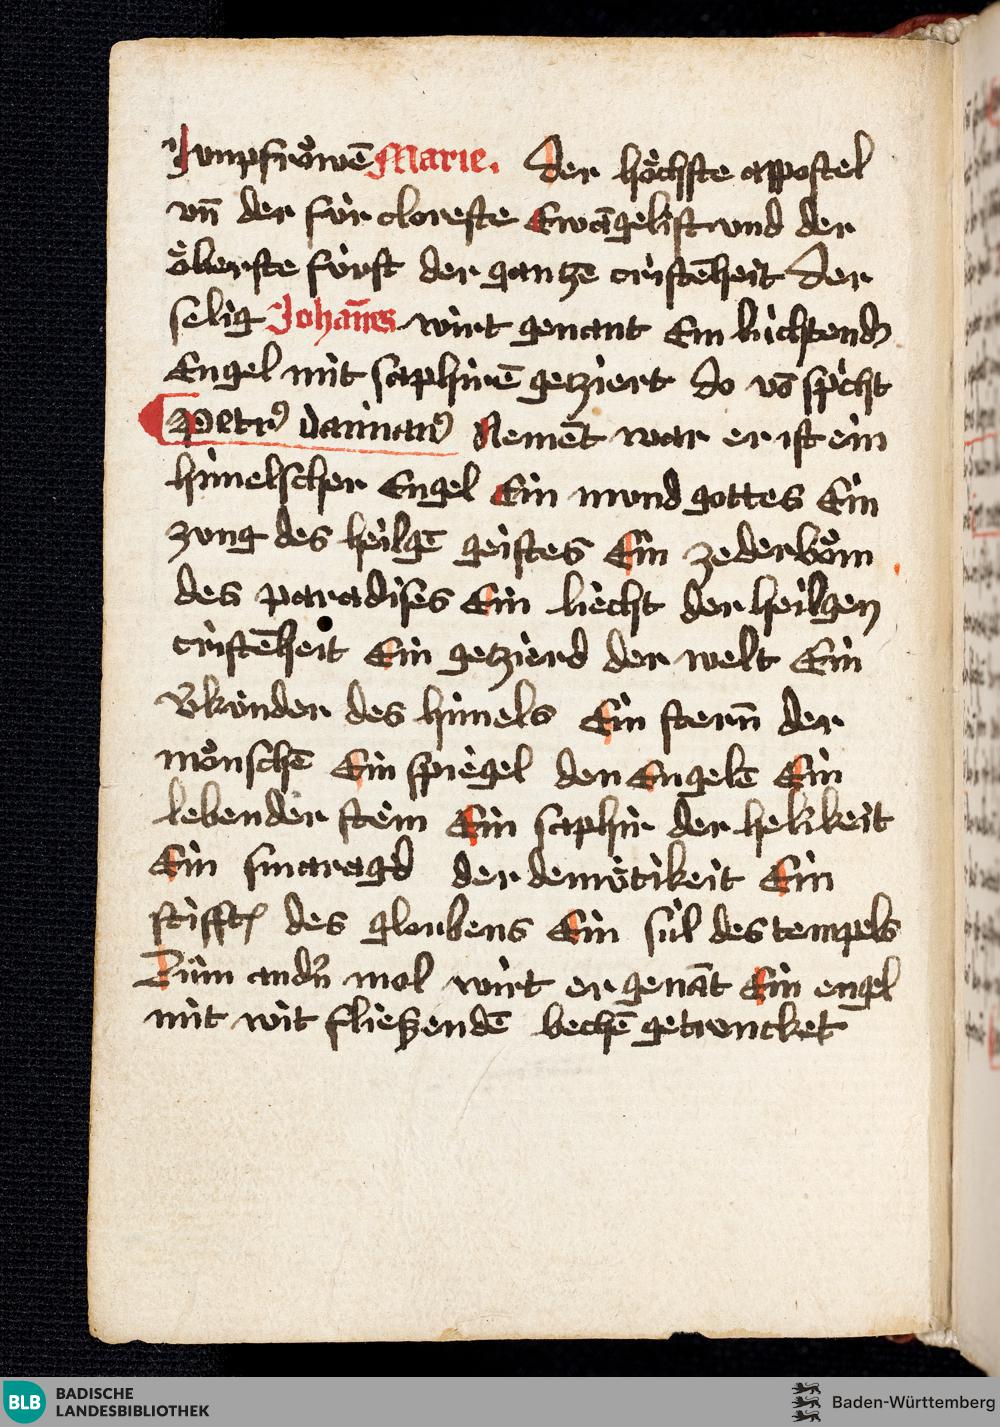 Junpfrȯwē Marie. Der hȯchste appostel
vn̄ der fúr cloreste Ewāgelist vnd der
ȯberste fúrst der gantzē cristēheit Der
selig Johan̄es wirt genant Ein lúchtend
Engel mit saphirē getziert do vō spͥcht
Petrꝰ damianꝰ Nemēt war er ist ein
himelscher Engel Ein mund gottes Ein
zung des heilgē geistes Ein zederbȯm
des paradises Ein liecht der heilgen
cristēheit Ein getzierd der welt Ein
Vͤkúnder des himels Ein stern̄ der
mȯnschē Ein spiegel den Engelē Ein
lebender stein Ein saphir der helikeit
Ein smaragd der demu̇tikeit Ein
stifft͛ des gloubens Ein súl des tempels
Zům andn̄ mol wirt er genāt Ein engel
mit wit fliessendē bechē getrencket
BLB
BADISCHE
LANDESBIBLIOTHEK
Baden-Württemberg